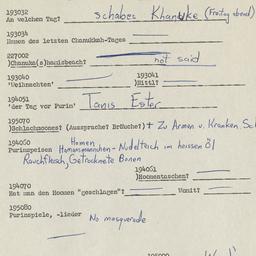 193032
An welchen Tag? schabes Khanuke (Freitag abend)
193034
Namen des letzten Chanukkah-Tages
227002
)Chanuka(a)hausbench? not said
193040 193041
'Weihnachten' )Nittl?
194051
'der Tag vor Purin' Tanis Ester
195070
)Schlachmones? (Aussprache? Bräuche?) + Zu Armen u. Kranken Sch
194060 Homen
Purimspeisen Homansmannchen - Nudelteich im heissen Öl
Rauchfleisch, Getrocknete Bonen
194061
)Homentaschen?
194070
Hat man den Homen "geschlagen"? Womit?
195080
Purimspiele, -lieder No masquerade